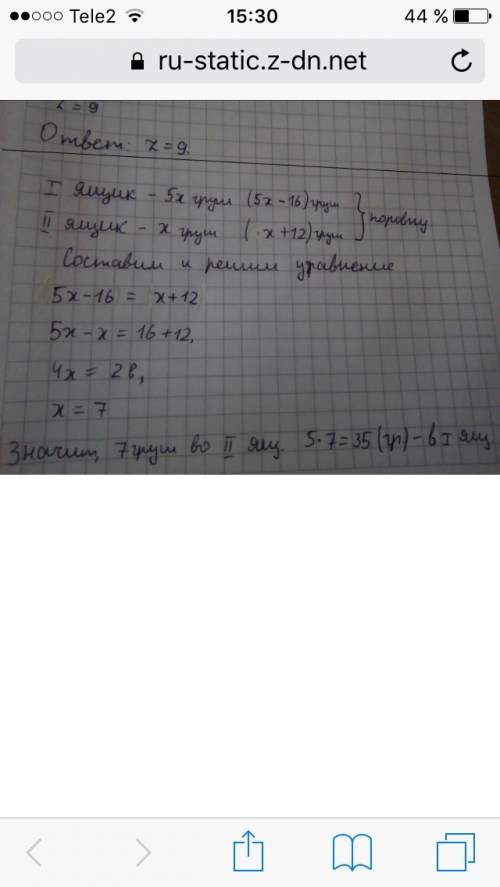 Tele2 15:30 44 %
ru-static.z-dn.net
z = 9
Ответ: z = 9.
I ящик - 5x груш (5x - 16) груш } поровну.
II ящик - x груш ( x + 12) груш
Составим и решим уравнение
5x - 16 = x + 12
5x - x = 16 + 12,
4x = 28,
x = 7
Значит, 7 груш во II ящ. 5 · 7 = 35 (гр) - в I ящ.